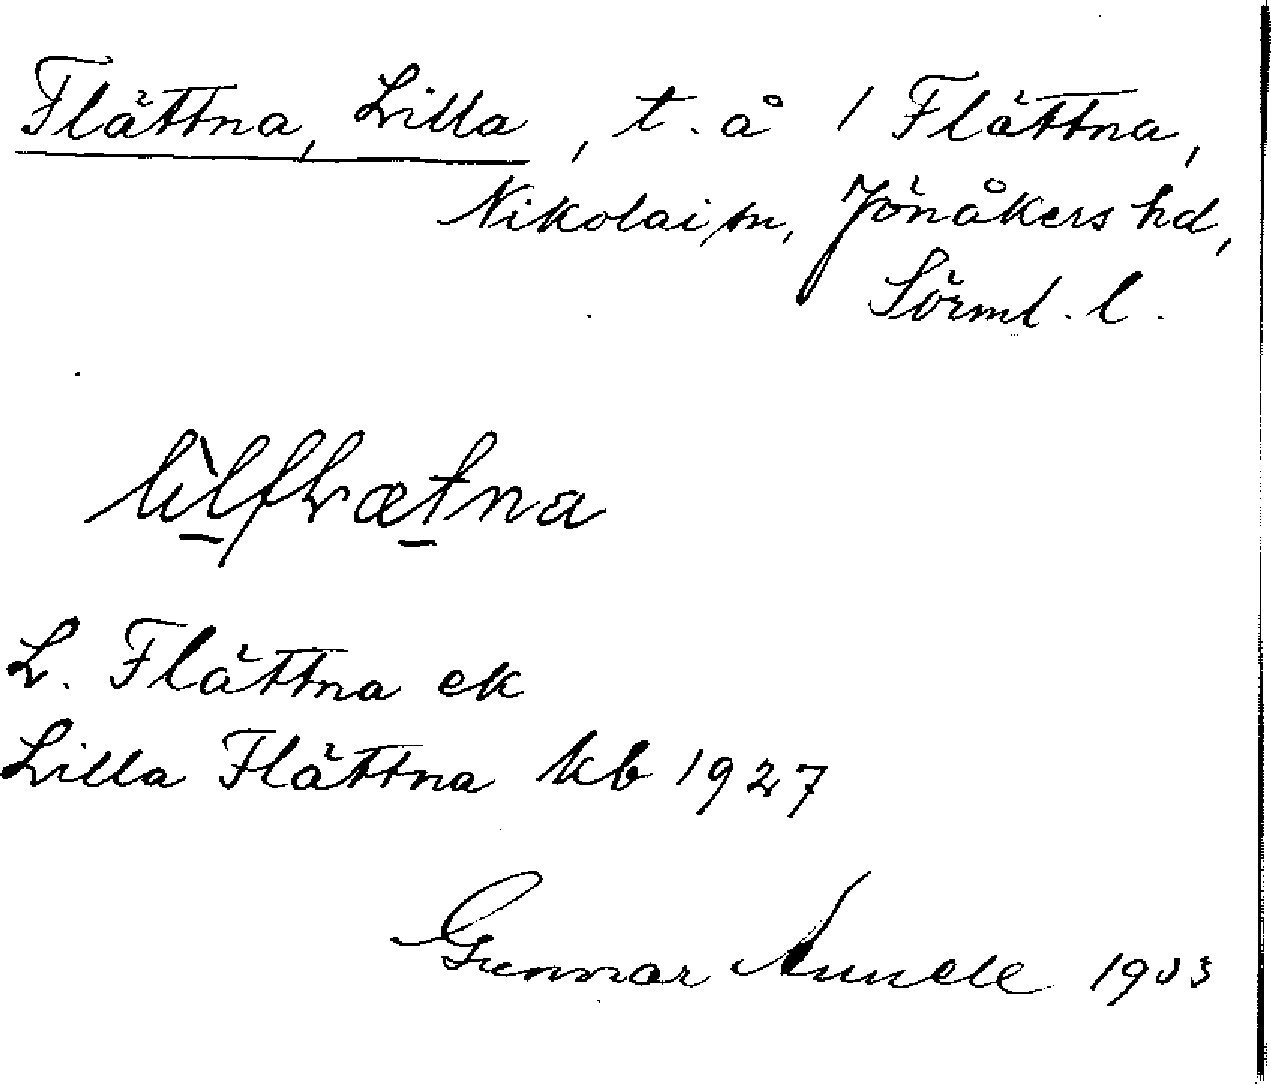 Flättna, Lilla, t. å 1 Flättna,
Nikolai sn, Jönåkers hd,
Sörml. l.
lìlflætna
L. Flättna ek
Lilla Flättna kb 1927
Gunnar 1933